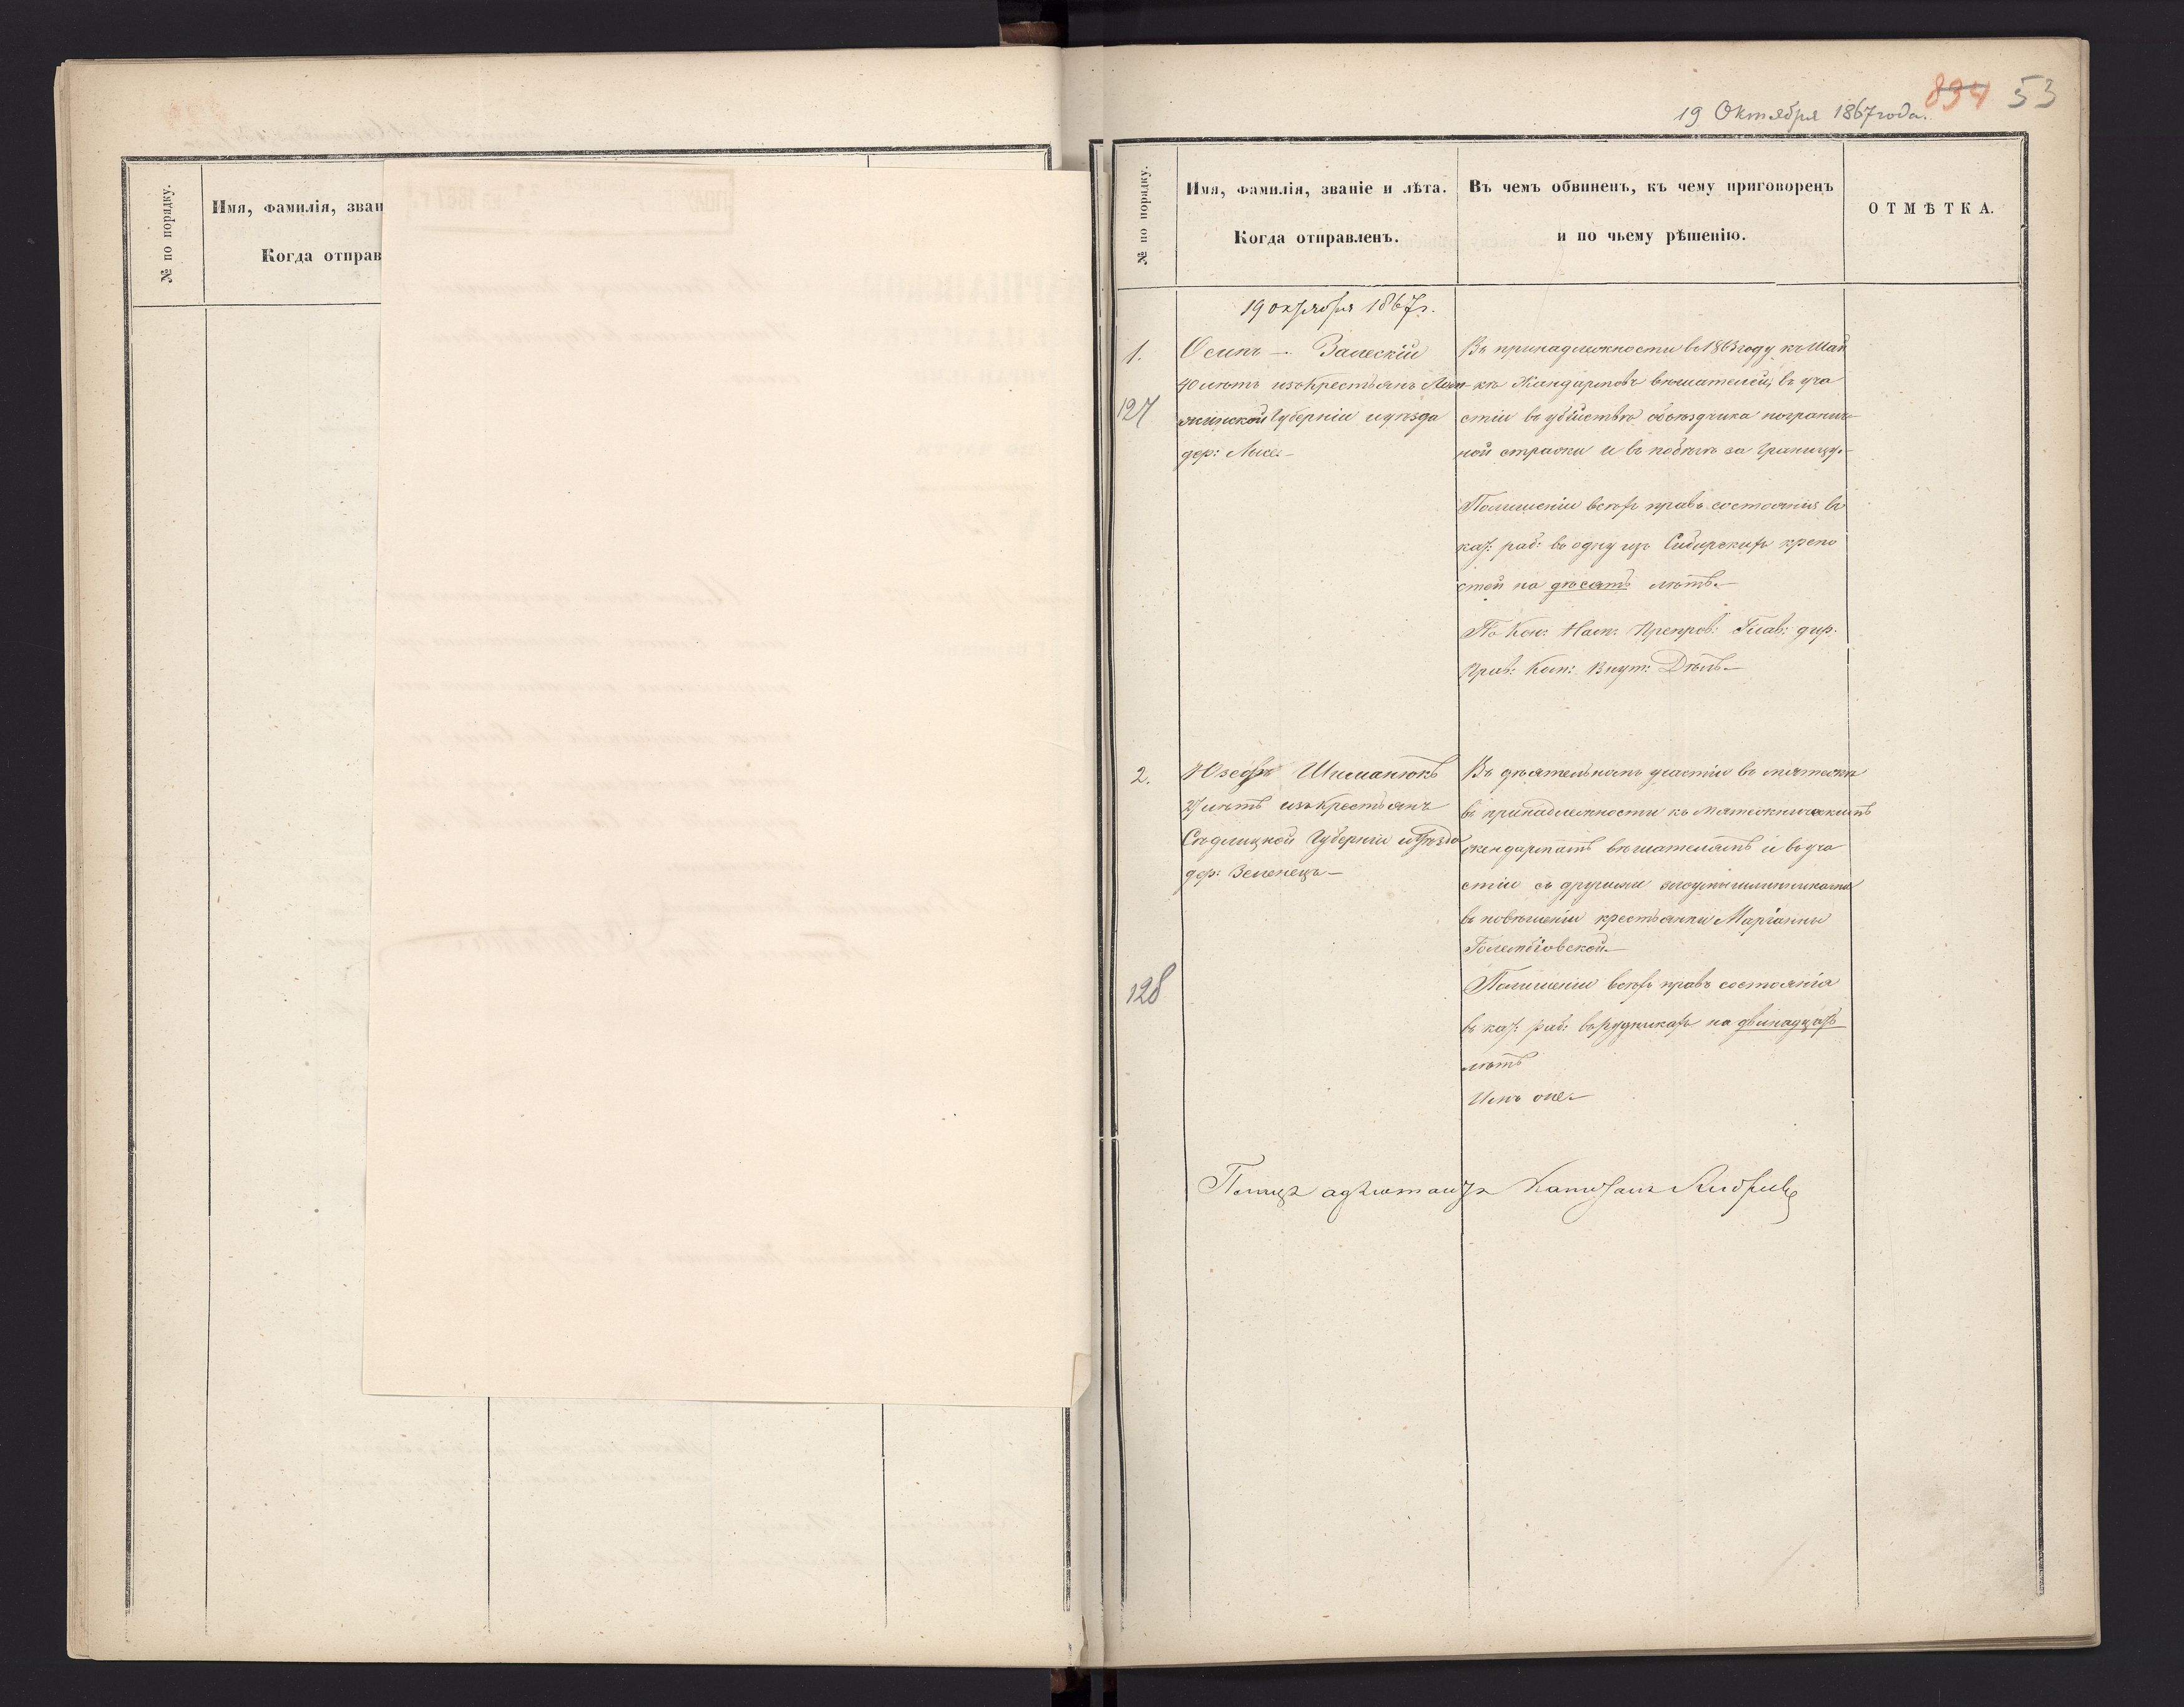 № по порядку.
Имя, фамилія, зван
Когда отправ
19 Октября 1867 года.
894 53
№ по порядку.
Имя, фамилія, званіе и лѣта.
Когда отправленъ.
Въ чемъ обвиненъ, къ чему приговоренъ
и по чьему рѣшенію.
ОТМѢТКА.
19 октября 1867 г.
1.
127
Осипъ — Залескій
40 лѣтъ изъ крестьянъ Лом
жинской Губерніи и уѣзда
дер:
Въ принадлежности въ 1863 году къ шай
кѣ жандармовъ вѣшателей, въ уча
стіи въ убійствѣ объѣздчика погранич
ной стражи и въ побѣгѣ за границу.
По лишеніи всѣхъ правъ состоянія въ
кат: раб: въ одну изъ Сибирскихъ крѣпо
стей на десять лѣтъ.
По Кон: Глав: дир.
Прав: Ком: Внут: Дѣлъ
2.
128
Юзефъ Шиманюкъ
27 лѣтъ изъ крестьянъ
Сѣдлицкой Губерніи и Уѣзда
дер: Зеленецъ
Въ дѣятельномъ участіи въ мятежѣ
въ принадлежности къ мятежническимъ
жандармамъ вѣшателямъ и въ уча
стіи съ другими злоумышленниками
въ повѣшеніи крестьянки Маріанны
Голембіовской
По лишеніи всѣхъ правъ состоянія
въ кат: раб: въ рудникахъ на двѣнадцать
лѣтъ
Имъ же
Плацъ адъютантъ Капитанъ